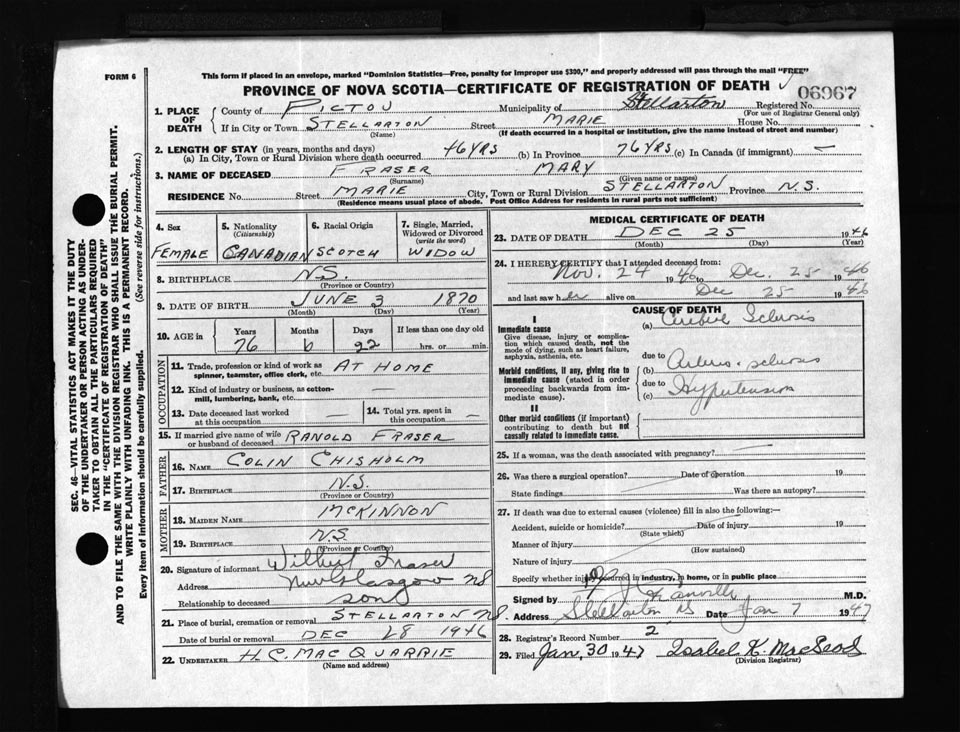 FORM 6
This form if placed in an envelope, marked "Dominion Statistics—Free, penalty for improper use $300," and properly addressed will pass through the mail "FREE"
PROVINCE OF NOVA SCOTIA—CERTIFICATE OF REGISTRATION OF DEATH
06967
1. PLACE OF DEATH
County of PICTOU Municipality of Stellarton Registered No.
(For use of Registrar General only)
If in City or Town STELLARTON Street MARIE House No.
(Name) (If death occurred in a hospital or institution, give the name instead of street and number)
2. LENGTH OF STAY (in years, months and days)
(a) In City, Town or Rural Division where death occurred 46 YRS (b) In Province 76 YRS (c) In Canada (if immigrant) —
3. NAME OF DECEASED FRASER MARY
(Surname) (Given name or names)
RESIDENCE No. Street MARIE City, Town or Rural Division STELLARTON Province N.S.
(Residence means usual place of abode. Post Office Address for residents in rural parts not sufficient)
4. Sex 5. Nationality (Citizenship) 6. Racial Origin 7. Single, Married, Widowed or Divorced (write the word)
FEMALE CANADIAN SCOTCH WIDOW
8. BIRTHPLACE N.S.
(Province or Country)
9. DATE OF BIRTH JUNE 3 1870
(Month) (Day) (Year)
10. AGE in Years Months Days If less than one day old
76 6 22 hrs. or min.
OCCUPATION
11. Trade, profession or kind of work as spinner, teamster, office clerk, etc. AT HOME
12. Kind of industry or business, as cotton-mill, lumbering, bank, etc. —
13. Date deceased last worked at this occupation — 14. Total yrs. spent in this occupation —
15. If married give name of wife or husband of deceased RANOLD FRASER
FATHER
16. NAME COLIN CHISHOLM
17. BIRTHPLACE N.S.
(Province or Country)
MOTHER
18. MAIDEN NAME MCKINNON
19. BIRTHPLACE N.S.
(Province or Country)
20. Signature of informant Wilbert Fraser
Address New Glasgow NS
Relationship to deceased son
21. Place of burial, cremation or removal STELLARTON NS.
Date of burial or removal DEC 28 1946
22. UNDERTAKER H.C. MACQUARRIE
(Name and address)
MEDICAL CERTIFICATE OF DEATH
23. DATE OF DEATH DEC 25 1946
(Month) (Day) (Year)
24. I HEREBY CERTIFY that I attended deceased from:
Nov. 24 1946 to Dec. 25 1946
and last saw her alive on Dec 25 1946
CAUSE OF DEATH
I
Immediate cause
Give disease, injury or complication which caused death, not the mode of dying, such as heart failure, asphyxia, asthenia, etc.
(a) Sclerosis
due to
Morbid conditions, if any, giving rise to immediate cause (stated in order proceeding backwards from immediate cause).
(b) Arterio-sclerosis
due to
(c) Hypertension
II
Other morbid conditions (if important) contributing to death but not causally related to immediate cause.
25. If a woman, was the death associated with pregnancy?
26. Was there a surgical operation? Date of operation 19
State findings Was there an autopsy?
27. If death was due to external causes (violence) fill in also the following:—
Accident, suicide or homicide? Date of injury 19
(State which)
Manner of injury
(How sustained)
Nature of injury
Specify whether injury occurred in industry, in home, or in public place
Signed by M.D.
Address Stellarton NS Date Jan 7 1947
28. Registrar's Record Number 2
29. Filed Jan, 30 1947 Isabel K. MacLeod
(Division Registrar)
SEC. 46—VITAL STATISTICS ACT MAKES IT THE DUTY
OF THE UNDERTAKER OR PERSON ACTING AS UNDERTAKER TO OBTAIN ALL THE PARTICULARS REQUIRED
IN THE "CERTIFICATE OF REGISTRATION OF DEATH"
AND TO FILE THE SAME WITH THE DIVISION REGISTRAR WHO SHALL ISSUE THE BURIAL PERMIT.
WRITE PLAINLY WITH UNFADING INK. THIS IS A PERMANENT RECORD.
Every item of information should be carefully supplied. (See reverse side for instructions.)